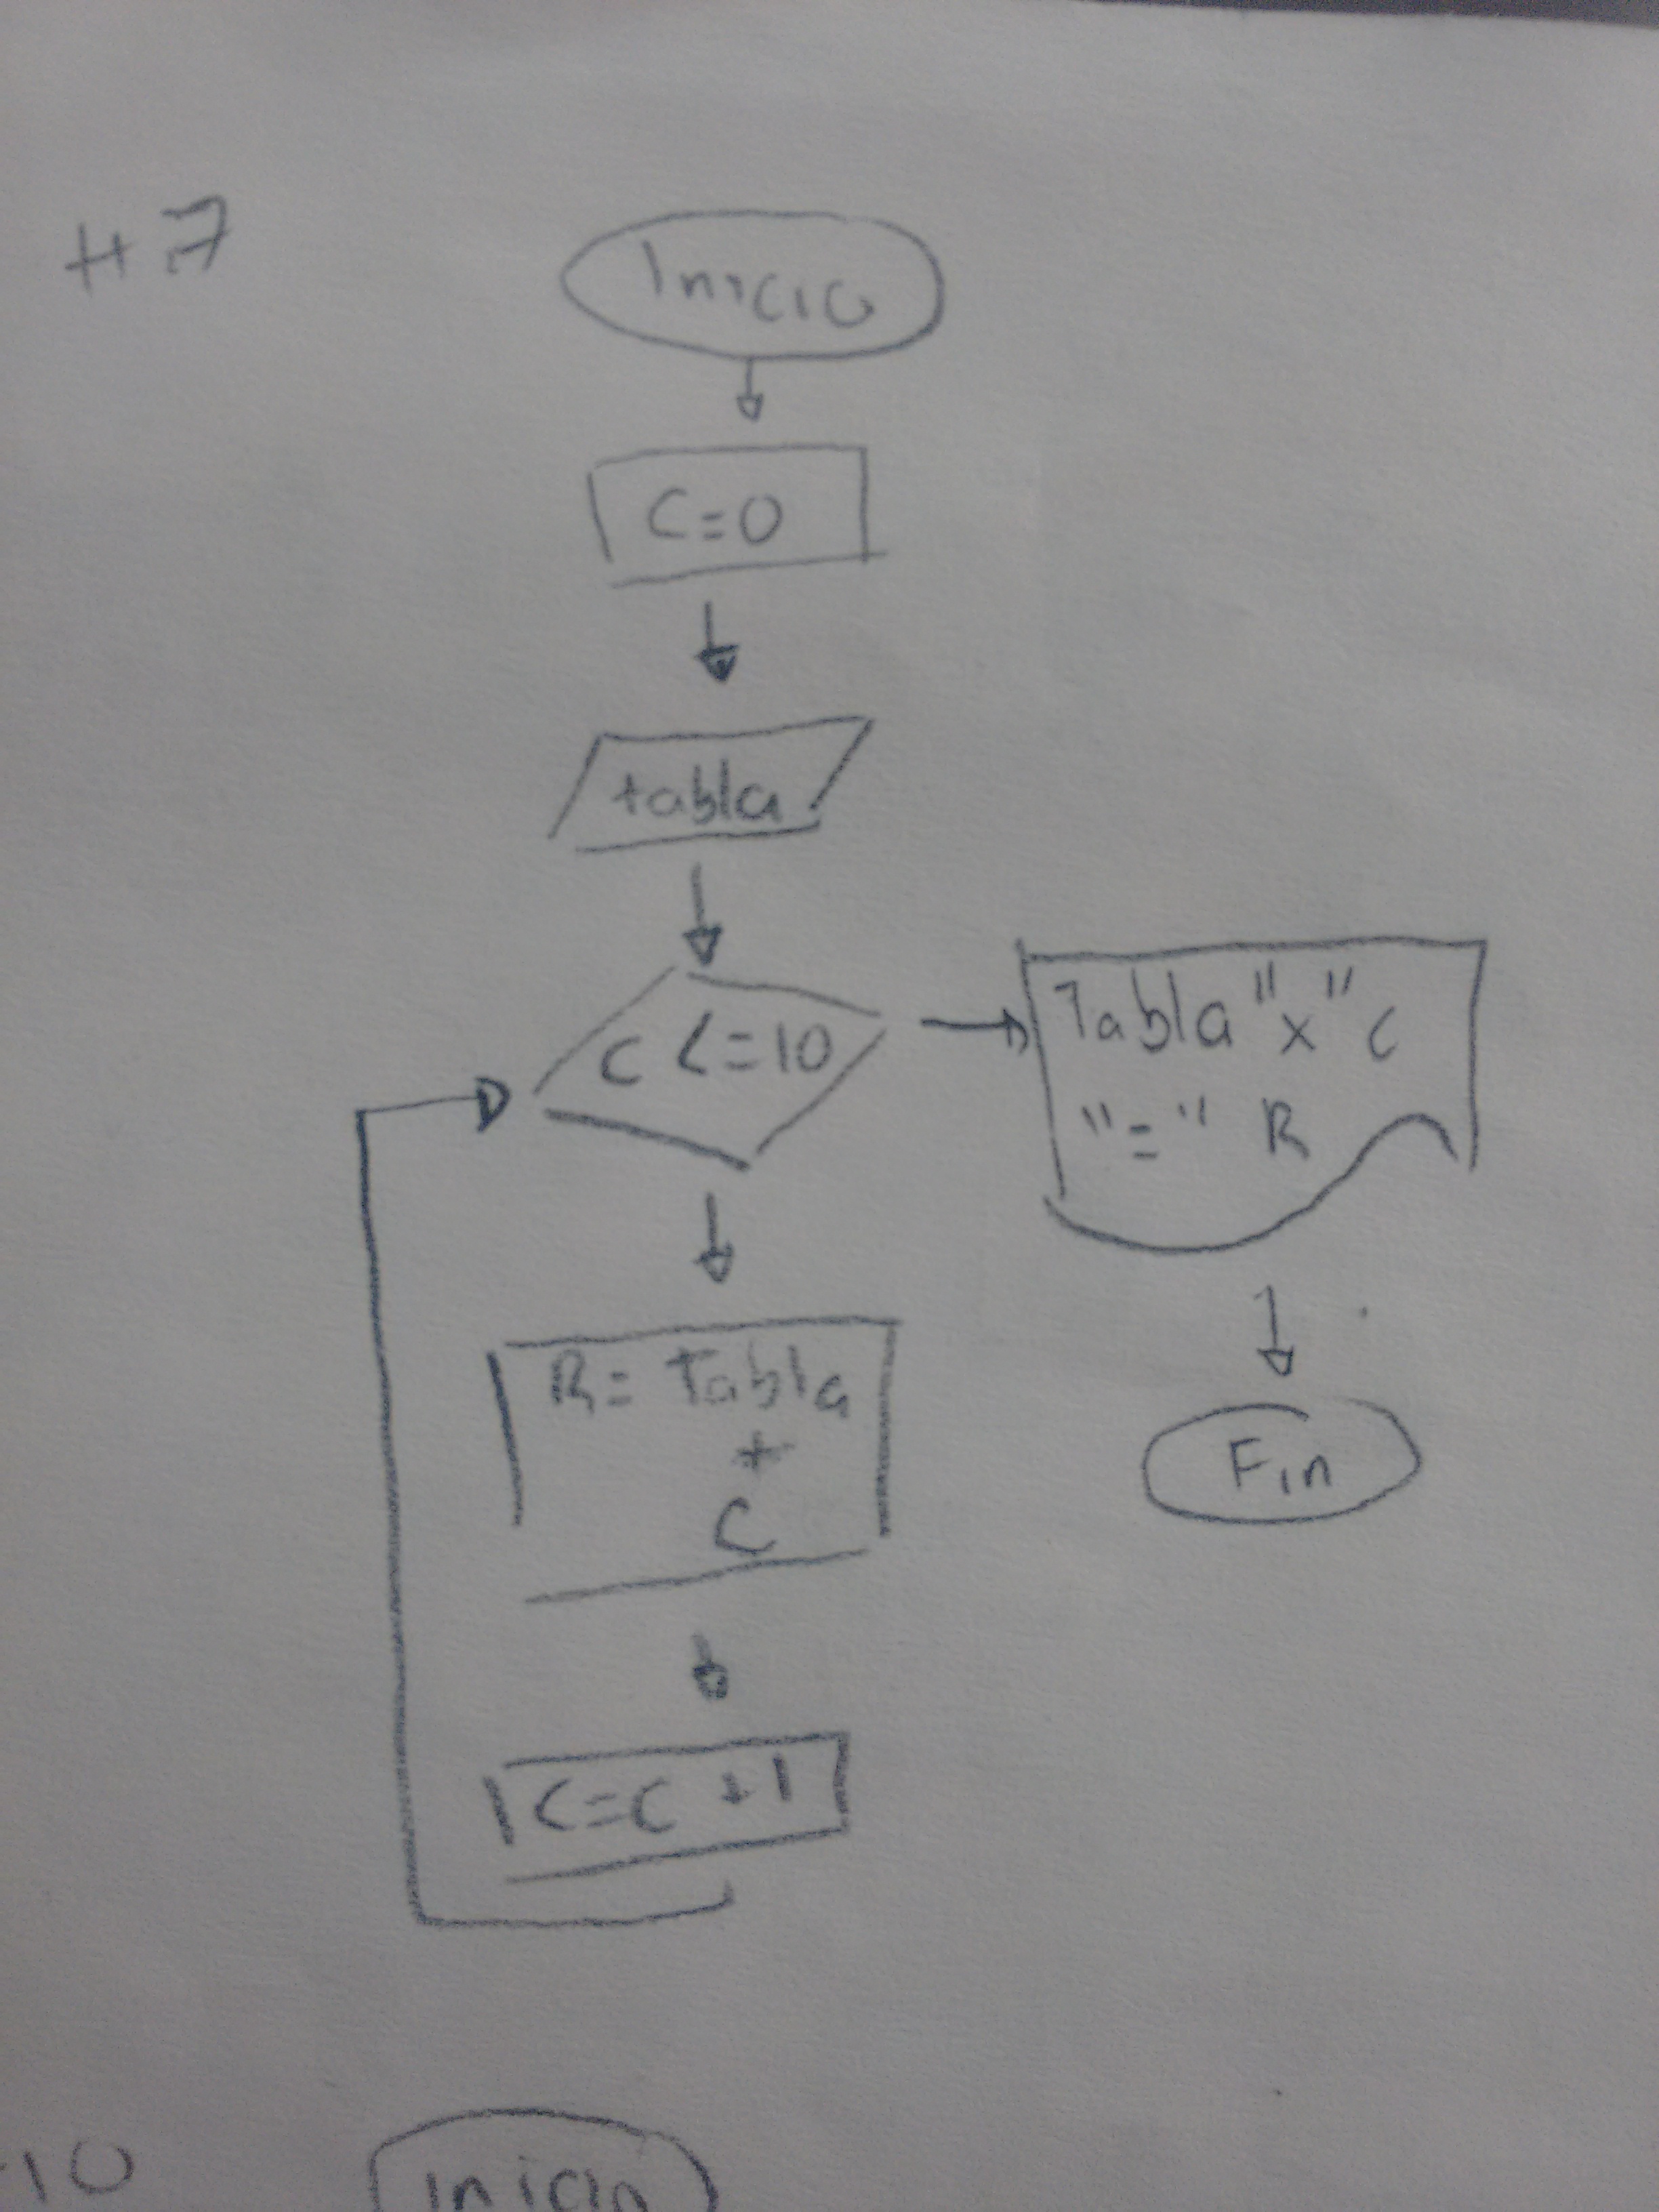 #7
Inicio
C=0
tabla
C <=10
Tabla "x" C
"=" R
R= Tabla
+
C
C=C+1
Fin
10
Inicio